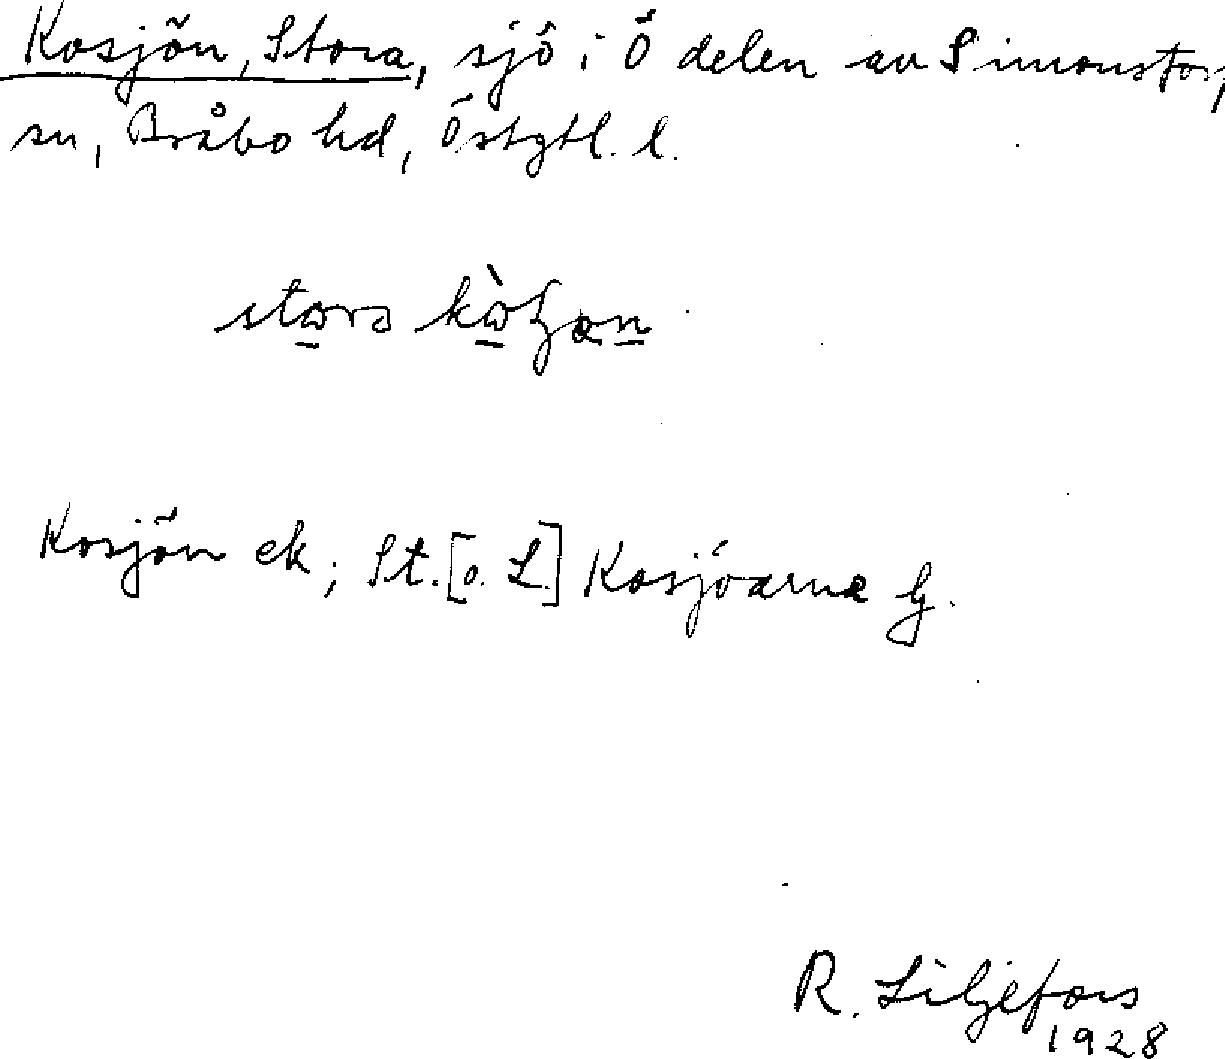 Kosjön, Stora, sjö i Ö delen av Simonstorp
sn, Bråbo hd, Östgtl. l.
Kosjön ek; St. [o. L.] Kosjöarna G.
R. Liljefors
1928